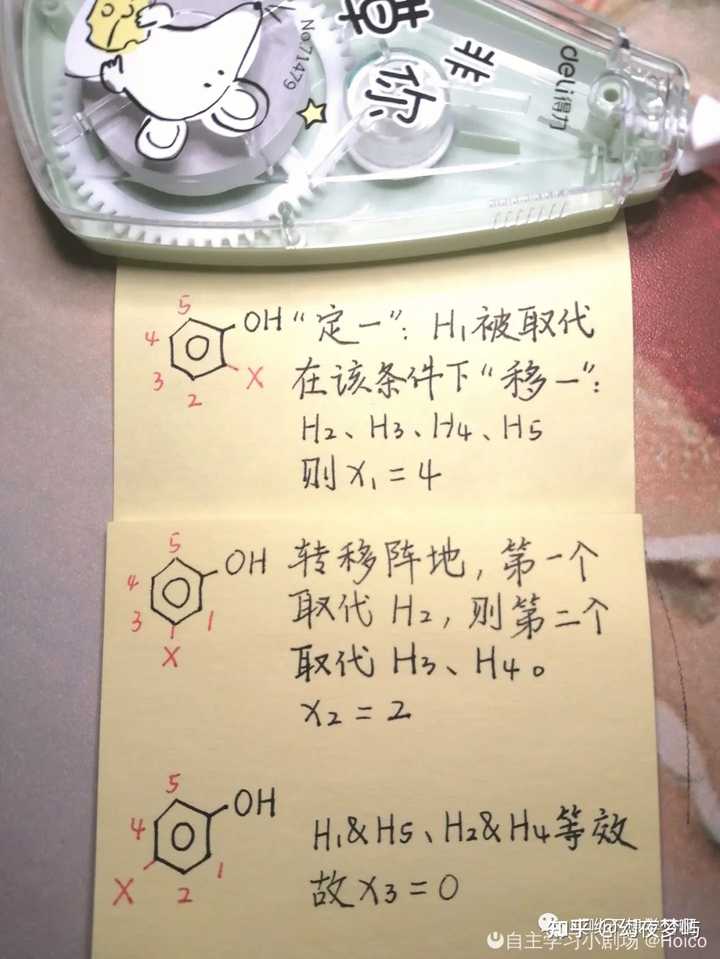 No.71479
非
你
deli得力
5
4
OH
3
X
2
“定一”：H₁被取代
在该条件下“移一”：
H₂、H₃、H₄、H₅
则x₁=4
5
4
OH
3
1
X
转移阵地，第一个
取代H₂，则第二个
取代H₃、H₄。
x₂=2
5
4
OH
1
X
2
H₁&H₅、H₂&H₄等效
故x₃=0
知乎 @幻夜梦屿
自主学习小剧场 @Hoico